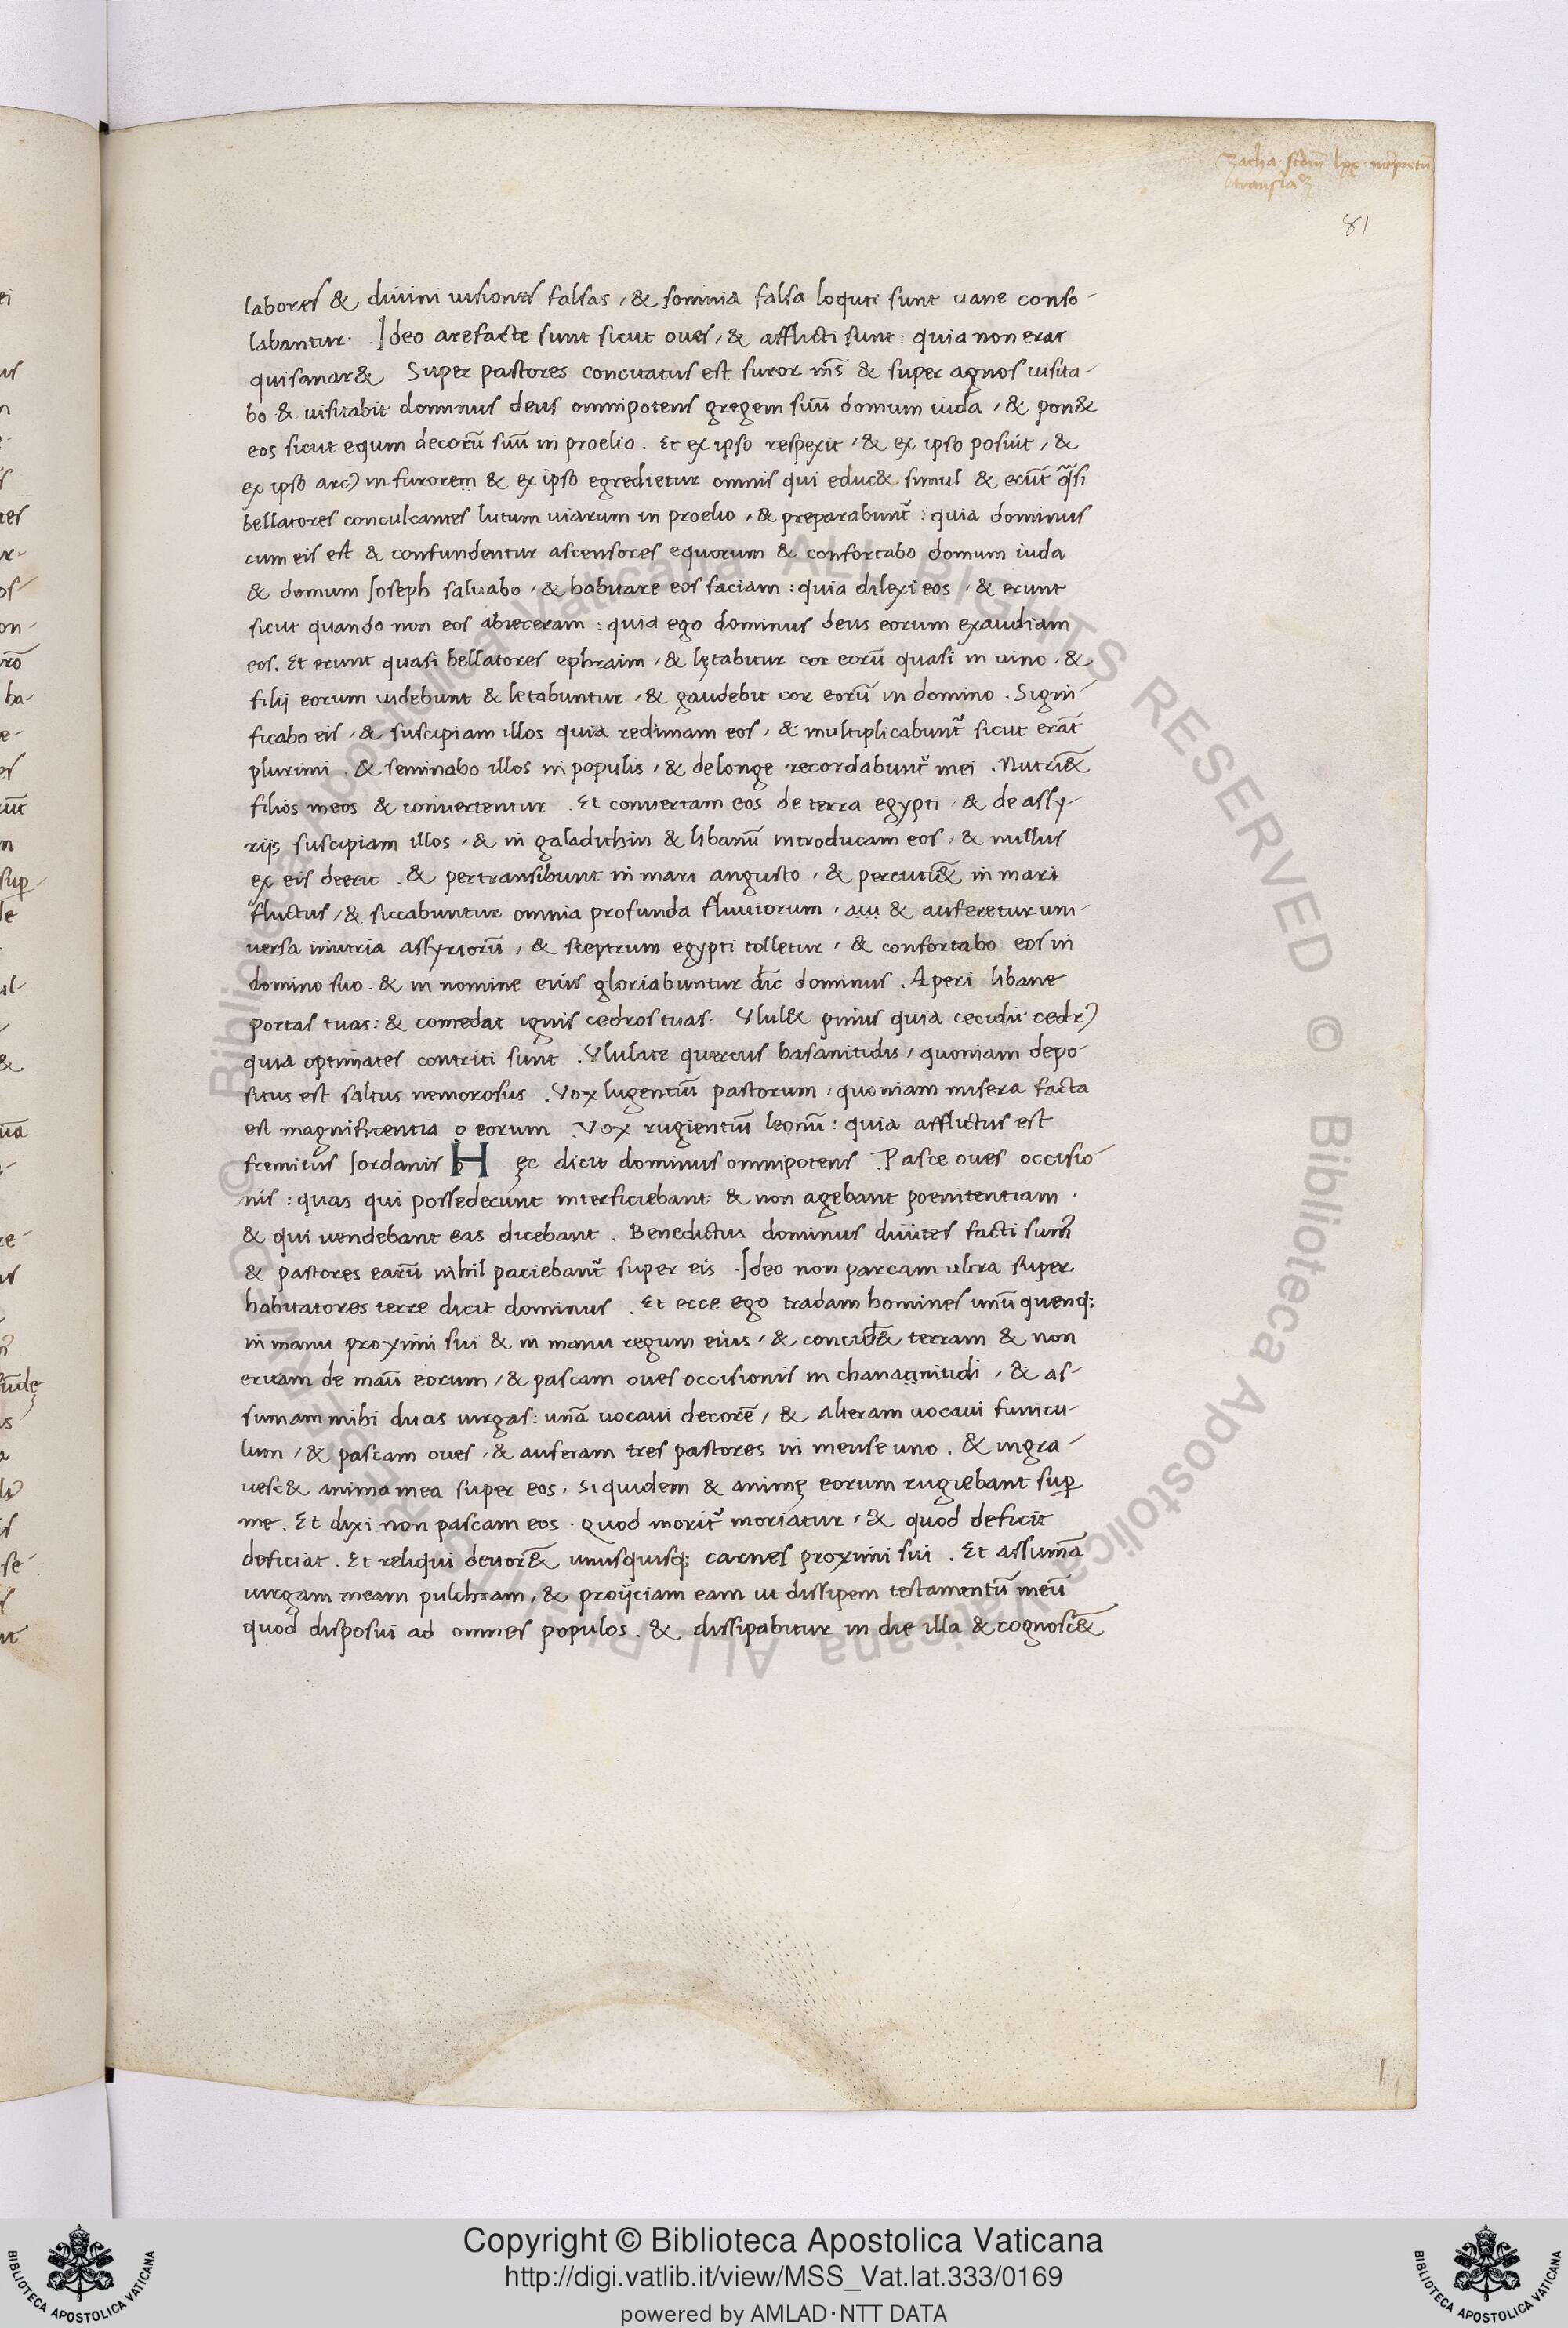 Zacha. scdm lxx. interpretum
translaōz
81
labores & diuini uisiones falsas, & somnia falsa loquti sunt uane conso-
labantur. Ideo arefacte sunt sicut oues, & afflicti sunt: quia non erat
qui sanar& Super pastores concitatus est furor m̄s & super agnos uisita-
bo & uisitabit dominus deus omnipotens gregem suū domum iuda, & pon&
eos sicut equm decorū suū in proelio. Et ex ipso respexit, & ex ipso posuit, &
ex ipso arc) in furorem & ex ipso egredietur omnis qui educ& simul & erūt q̄si
bellatores conculcantes lutum uiarum in proelio, & preparabunt̄: quia dominus
cum eis est & confundentur ascensores equorum & confortabo domum iuda
& domum Ioseph saluabo, & habitare eos faciam: quia dilexi eos, & erunt
sicut quando non eos abieceram: quia ego dominus deus eorum exaudiam
eos. Et erunt quasi bellatores ephraim, & lętabitur cor eorū quasi in uino, &
filij eorum uidebunt & letabuntur, & gaudebit cor eorū in domino. Signi-
ficabo eis, & suscipiam illos quia redimam eos, & multiplicabunt̄ sicut erāt
plurimi. & seminabo illos in populis, & de longe recordabunt̄ mei. Nutri&̄
filios meos & conuertentur. Et conuertam eos de terra egypti, & de assy-
rijs suscipiam illos, & in galadithin & libanū introducam eos, & nullus
ex eis deerit. & pertransibunt in mari angusto, & percuti&̄ in mari
fluctus, & siccabuntur omnia profunda fluuiorum, aui & auferetur uni-
uersa iniuria assyriorū, & sceptrum egypti tolletur, & confortabo eos in
domino suo. & in nomine eius gloriabuntur dic̄ dominus. Aperi libane
portas tuas: & comedat ignis cedros tuas. Ylul& pinus quia cecidit cedr)
quia optimates contriti sunt. Ylulate quercus basanitidis, quoniam depo-
situs est saltus nemorosus. Vox lugentiū pastorum, quoniam misera facta
est magnificentia o eorum. Vox rugientiū leonū: quia afflictus est
fremitus Iordanis H ęc dicit dominus omnipotens. Pasce oues occisio-
nis: quas qui possederunt interficiebant & non agebant poenitentiam.
& qui uendebant eas dicebant. Benedictus dominus diuites facti sum)
& pastores earū nihil paciebant̄ super eis. Ideo non parcam ultra super
habitatores terre dicit dominus. Et ecce ego tradam homines unū quenq;
in manu proximi sui & in manu regum eius, & concid&̄ terram & non
eruam de manū eorum, & pascam oues occisionis in chanaanitidi, & as-
sumam mihi duas uirgas: unā uocaui decorē, & alteram uocaui funicu-
lum, & pascam oues, & auferam tres pastores in mense uno. & ingra-
uesc& anima mea super eos. Si quidem & animę eorum rugiebant sup̄
me. Et dixi non pascam eos. Quod morit̄ moriatur, & quod deficit
deficiat. Et reliqui deuor&̄ unusquisq; carnes proximi sui. Et assumā
uirgam meam pulchram, & proijciam eam ut dissipem testamentū meū
quod disposui ad omnes populos. & dissipabitur in die illa & cognosc&̄
Copyright © Biblioteca Apostolica Vaticana
http://digi.vatlib.it/view/MSS_Vat.lat.333/0169
powered by AMLAD·NTT DATA
BIBLIOTECA APOSTOLICA VATICANA
BIBLIOTECA APOSTOLICA VATICANA